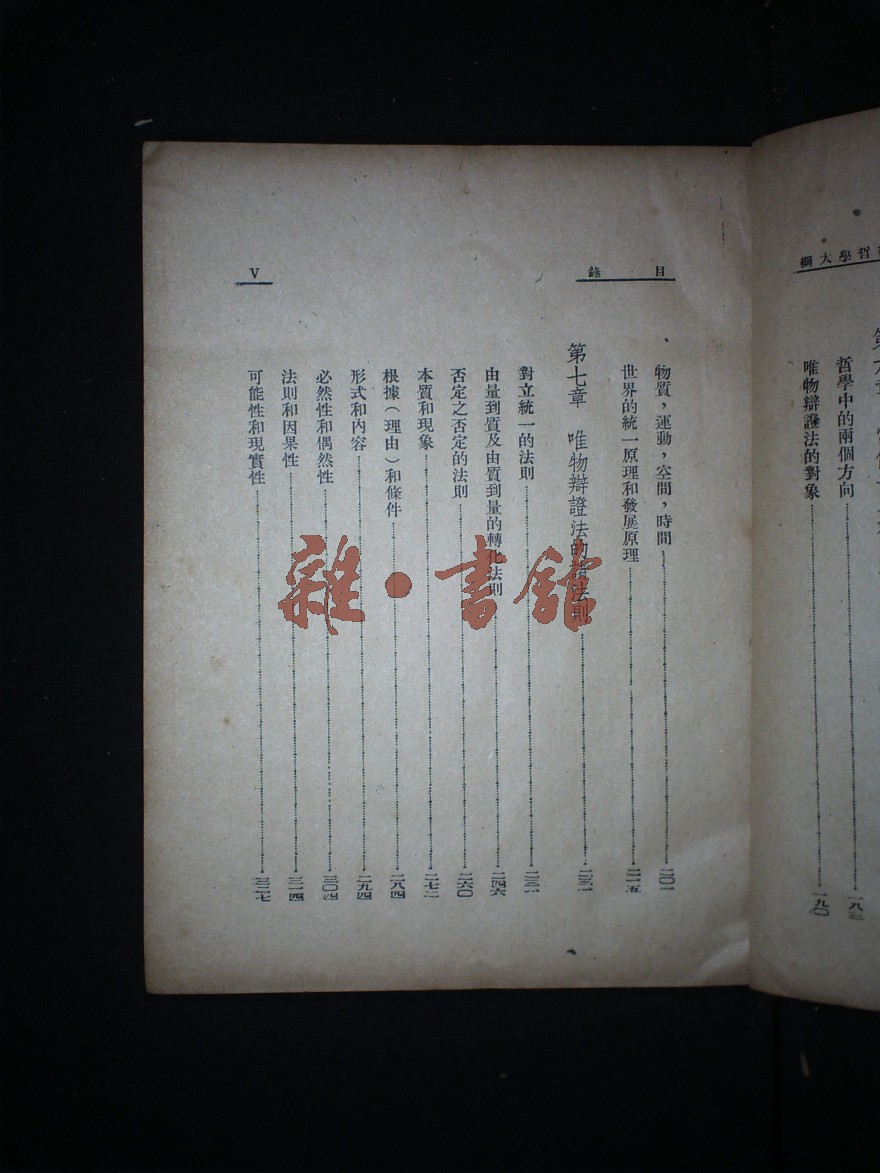 哲學大綱
哲學中的兩個方向 一八三
唯物辯證法的對象 一九〇
目錄
V
物質，運動，空間，時間 二〇一
世界的統一原理和發展原理 二一五
第七章 唯物辯證法的諸法則 二三一
對立統一的法則 二三一
由量到質及由質到量的轉化法則 二四六
否定之否定的法則 二六〇
本質和現象 二七二
根據（理由）和條件 二八四
形式和內容 二九四
必然性和偶然性 三〇四
法則和因果性 三一四
可能性和現實性 三二七
雜·書館